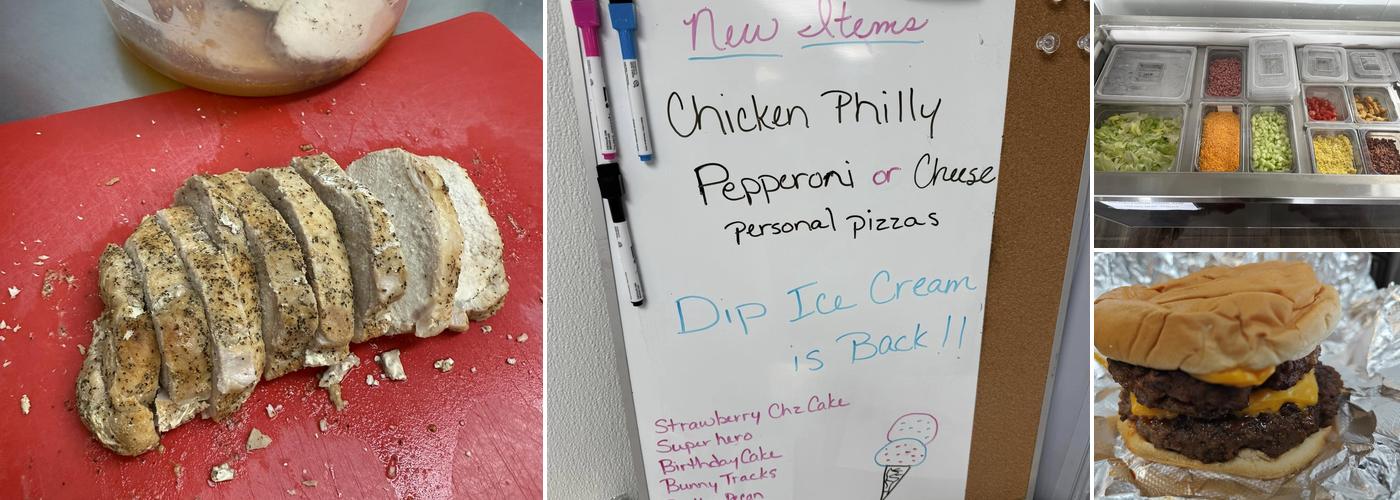 New Items
Chicken Philly
Pepperoni or Cheese
personal pizzas
Dip Ice Cream
is Back!!
Strawberry Chz Cake
Superhero
Birthday Cake
Bunny Tracks
Pecan